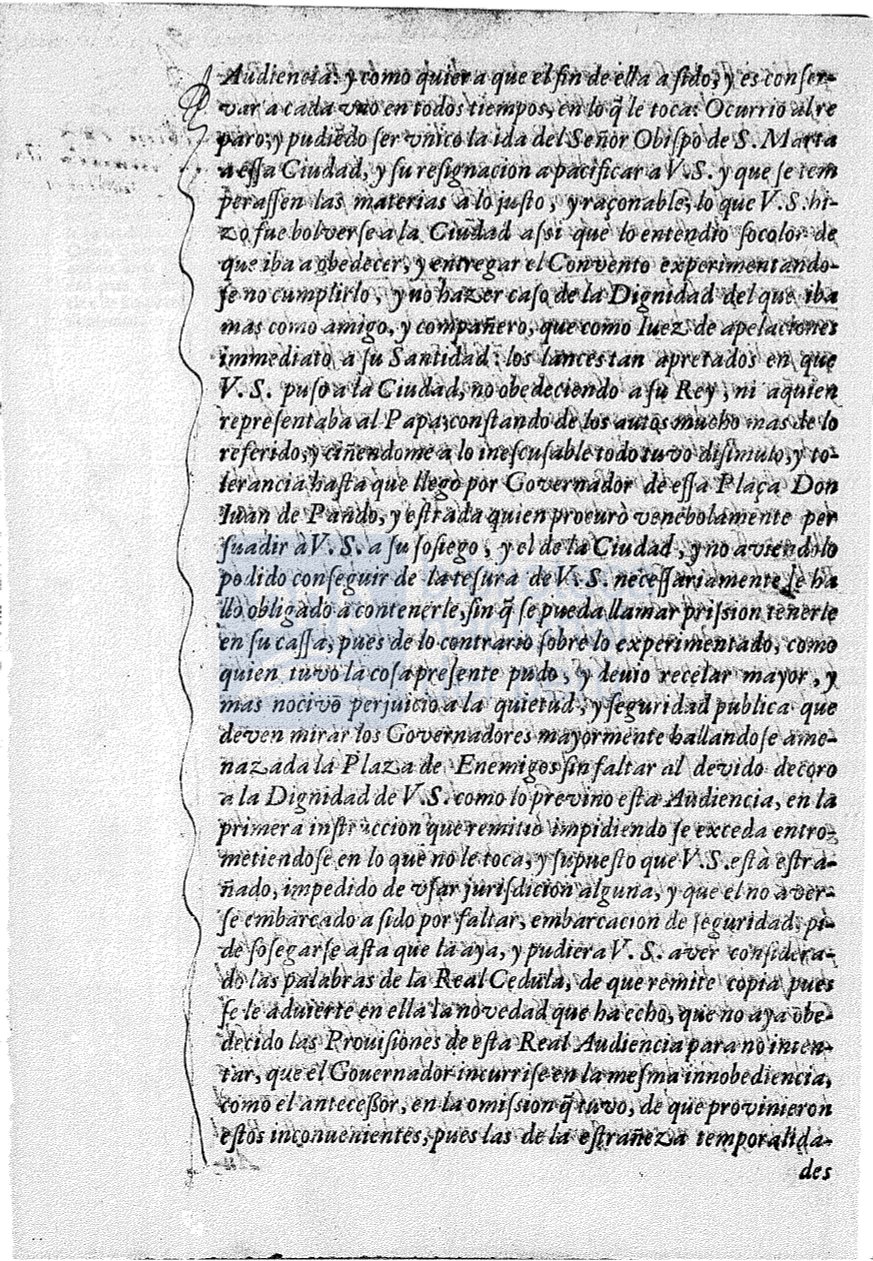 Audiencia: y como quiera que el fin de ella a ſido, y es conſer-
var a cada vno en todos tiempos, en lo q̃ le toca: Ocurriò al re
paro; y pudiẽdo ſer vnico la ida del Señor Obiſpo de S. Marta
a eſſa Ciudad, y ſu reſignacion a pacificar a V.S. y que ſe tem
peraſſen las materias à lo juſto, y raçonable, lo que V.S. hi-
zo fue bolverſe a la Ciudad aſsi que lo entendio ſocolor de
que iba a obedecer, y entregar el Convento experimentando-
ſe no cumplirlo, y no hazer caſo de la Dignidad del que iba
mas como amigo, y compañero, que como Iuez de apelaciones
immediato a ſu Santidad: los lances tan apretados en que
V.S. puſo a la Ciudad, no obedeciendo a ſu Rey, ni aquien
repreſentaba al Papa; conſtando de los autos mucho mas de lo
referido, y ciñendome a lo ineſcuſable todo tuvo diſimulo, y to-
lerancia haſta que llegò por Governador de eſſa Plaça Don
Iuan de Pando, y eſtrada quien procurò venebolamente per
ſuadir à V.S. a ſu ſoſiego, y el de la Ciudad, y no aviendolo
podido conſeguir de la teſura de V.S. neceſſariamente ſe ha
llò obligado a contenerle, ſin q̃ ſe pueda llamar priſsion tenerle
en ſu caſſa, pues de lo contrario ſobre lo experimentado, como
quien tuvo la coſa preſente pudo, y deuio recelar mayor, y
mas nocivo perjuicio a la quietud, y ſeguridad publica que
deven mirar los Governadores mayormente hallandoſe ame-
nazada la Plaza de Enemigos ſin faltar al devido decoro
a la Dignidad de V.S. como lo previno eſta Audiencia, en la
primera inſtruccion que remitiò impidiendo ſe exceda entro-
metiendoſe en lo que no le toca, y ſupueſto que V.S. eſtà eſtra-
ñado, impedido de vſar juriſdicion alguna, y que el no aver-
ſe embarcado a ſido por faltar, embarcacion de ſeguridad, pi-
de ſoſegarſe aſta que la aya, y pudiera V.S. aver conſidera-
do las palabras de la Real Cedula, de que remite copia pues
ſe le aduierte en ella la novedad que ha echo, que no aya obe-
decido las Prouiſiones de eſta Real Audiencia para no inten-
tar, que el Gouernador incurriſe en la meſma innobediencia,
como el anteceſſor, en la omiſsion q̃ tuvo, de que provinieron
eſtos inconuenientes, pues las de la eſtrañeza temporalida-
des